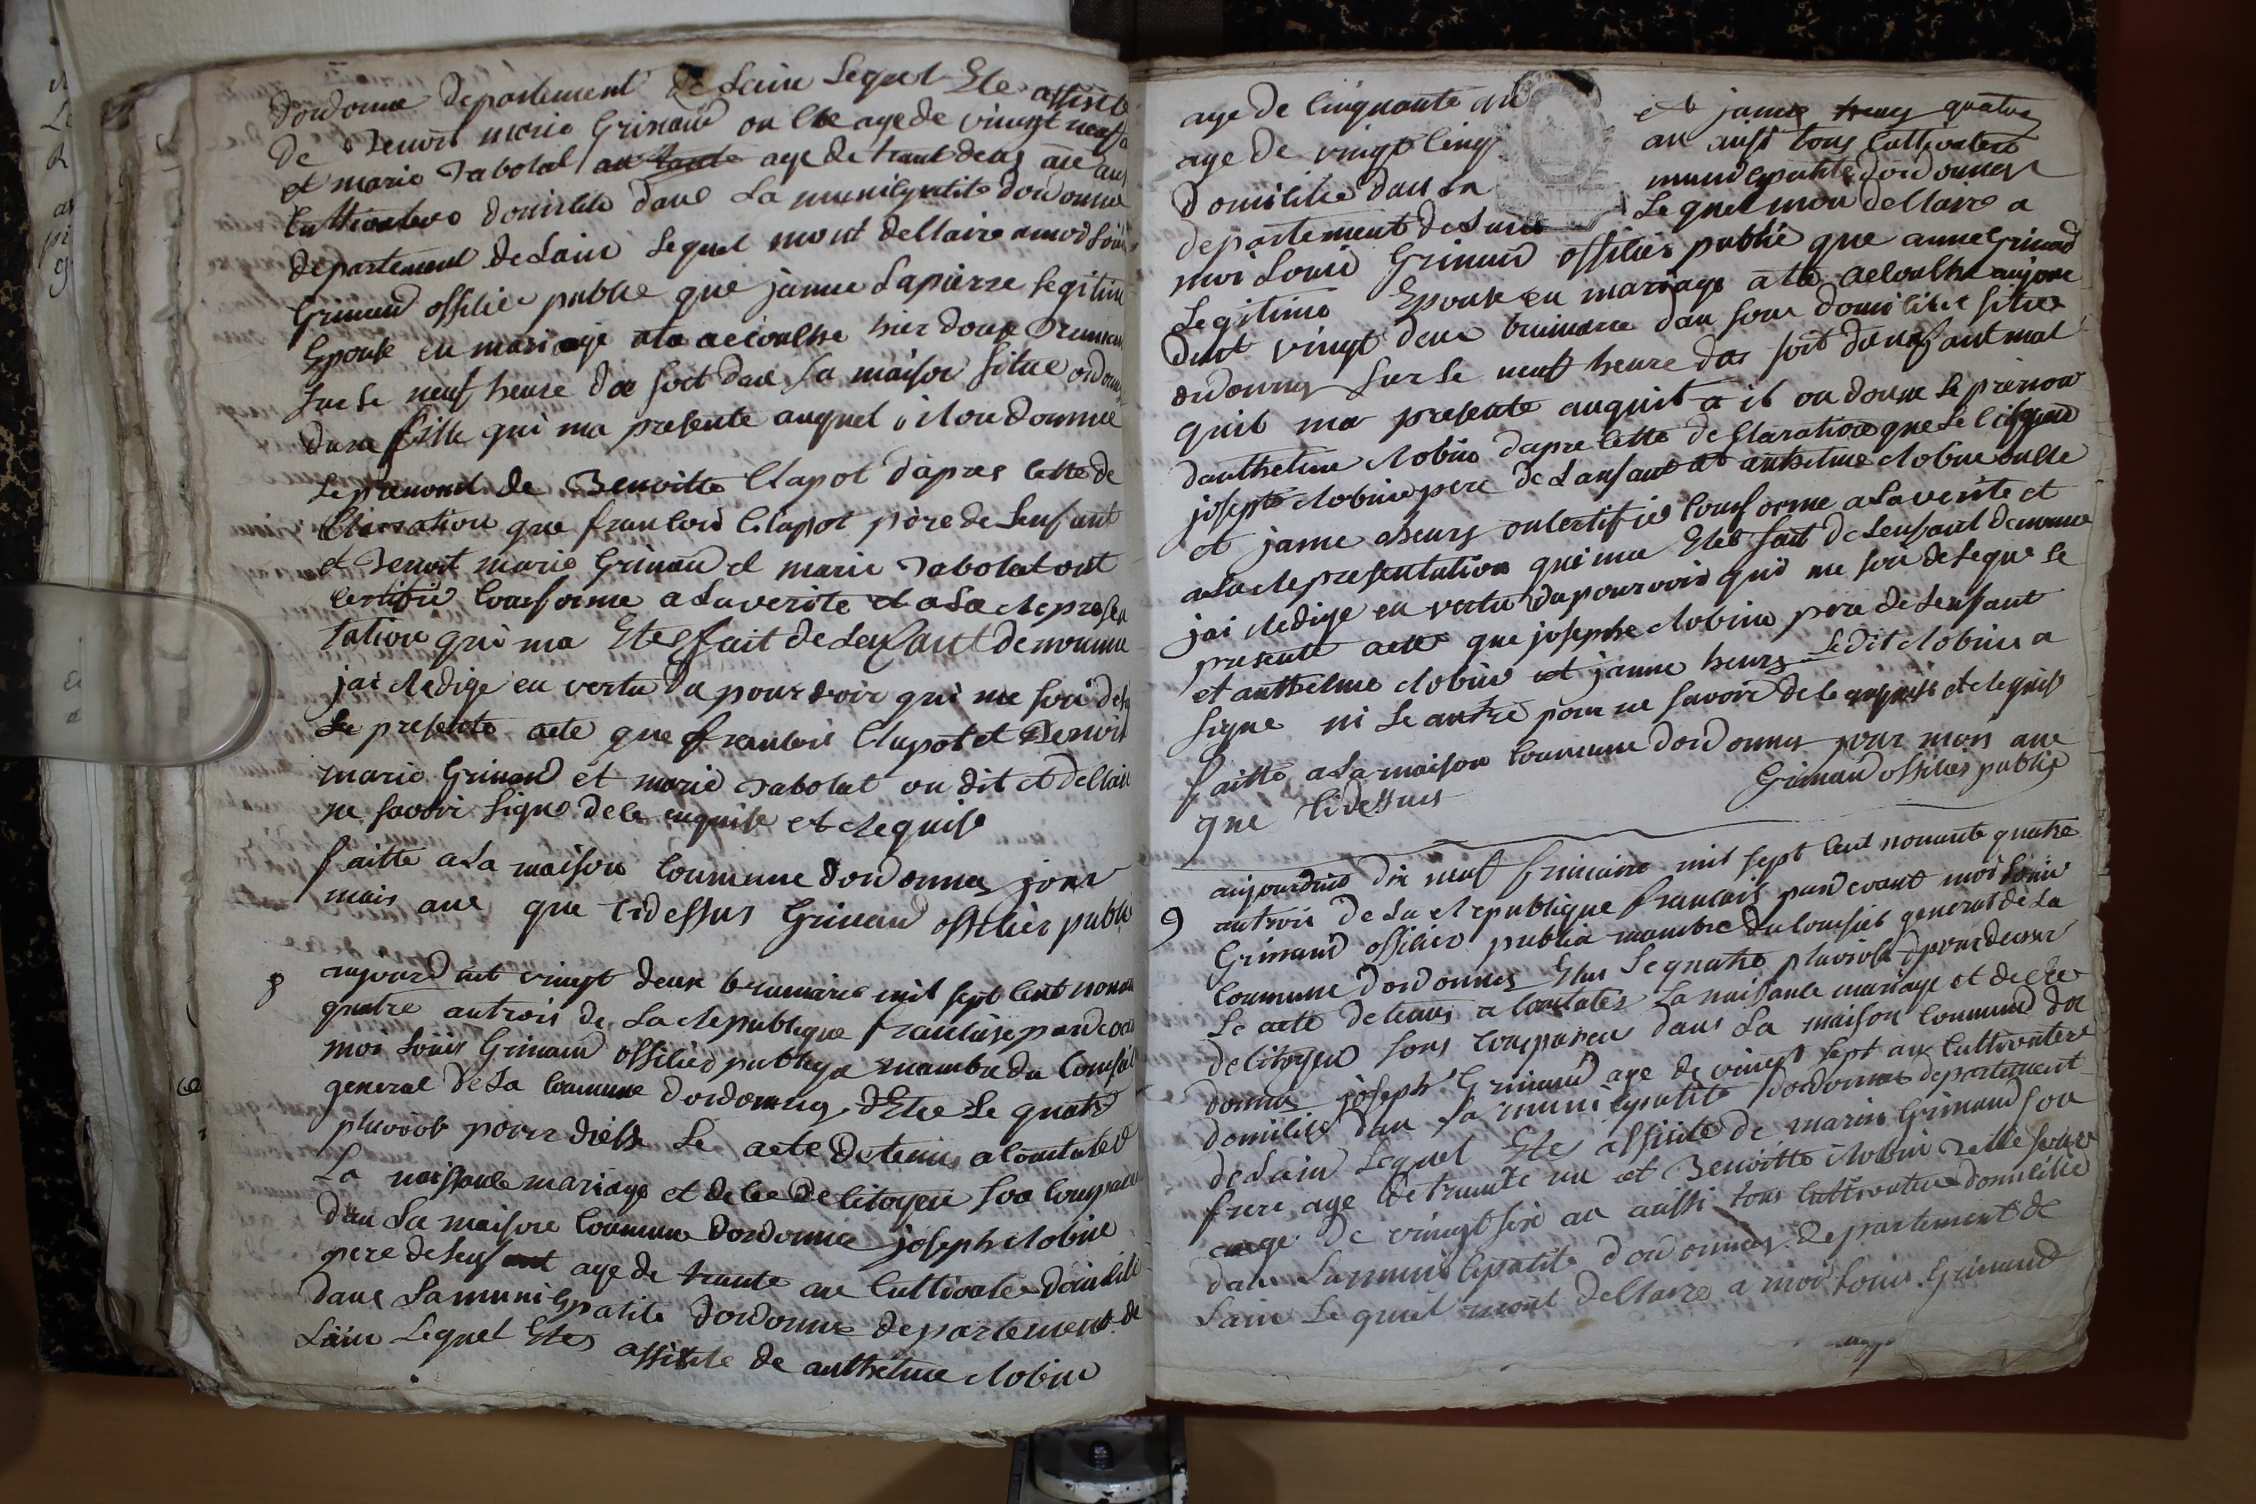 dordonna departement de Lain Lequel Ete assiste
de Benoit marie Grinand oncle age de vinngt neuf
et marie Jabolat age de trant deus ane aus
Cultivateurs domilile dans La munilipatite dordonna
departement de Lain Lequel mont dellaire a moi Louis
Grinand offilie publie que janne Lapierre Legitim
Epouse en mariage ata aecoulhe hier douse
sur Le neuf heure du soit dans sa maison situe ordonna
dune fille qui ma presente auquel il on donnee
Le prenont de Benoitte Clapot dapres lette de
Claration que franlois Clapot père de Lenfant
et Benoit marie Grinand et marie Jabolat ont
certifie Conforme a La verite et a La Represen
tation qui ma Etes fait de Lenfant denomme
jai Redige en vertu du pourvoir qui me son
Le presente acte que franlois Clapot et Benoit
marie Grinand et marie Jabolat on dit et dellair
ne savoir signe de le enquise et Requise
faitte a La maison Commune dordonna jour
mais ane que lidessus Grinand offilier publi
8 aujourdhui vingt deux brumaire mil sept lent nonan
quatre antrois de La Republique franlaise pardevan
moi Louis Grinand offilier publique manbre du Conseil
general de La Commune dordonnas Elu Le quatre
pluviose pour Le acte detenis a Constater
La naissanle mariage et de les de litoyen son Compar
dan La maison Commune dordonna joseph Robin
pere de Lenfant age de trante an Cultivateu domilile
dans La munilipatite dordonna departement de
Lain Lequel Etes assiste de anthelme Robin
age de linquante an et janne heurs quatre
age de vingt linq an ausi tous Cultivateurs
domilitie dans La munilipatite dordonnas
departement de Lain Lequel mon dellaire a
moi Louis Grinand offilier publie que anne Grinand
Legitime Epouse en mariage a te aecoulhe aujour
duit vingt deux brumaire dan son domilile situe
ordonnas sur Le neuf heure du soit dun enfant mal
quil ma presente auquel il on donne Le prenom
danthelme Robin dapre lette dellaration que Le litoyen
joseph Robin pere de Lanfant et anthelme Robin oncle
et janne heurs on certifie Conforme a La verite et
a La Representation qui ma Etes fait de Lenfant denomme
jai Redige en vertu du pourvoir qui me son delegue Le
presente acte que josephe Robin pere de Lenfant
et anthelme Robin et janne heurs Ledit Robin a
signe ni Le autre pour ne savoir de le enquis et Requis
faitte a La maison Commune dordonnas jour mois ane
que lidessus Grinand offilier publie
9 aujourdhui dix neuf frimaire mil sept lent nonante quatre
antrois de La Republique franlais pardevant moi Louis
Grinand offilier publia manbre du Conseil general de La
Commune dordonnas Elus Le quatre pluviose pour
Le acte detenis a Constater La naissanle mariage et de les
de litoyen sons Comparen dans La maison Commune dor
donna joseph Grinand age de vingt sept an Cultivateur
domilile dan La munilipatite dordonna departement
de Lain Lequel Etes assiste de marin Grinand son
frere age de trante un et Benoitte Robin belle seur
age de vingt six an aussi tous Cultivateur domilile
dans La munilipatite dordonnas departement de
Lain Lequel mont dellaire a moi Louis Grinand